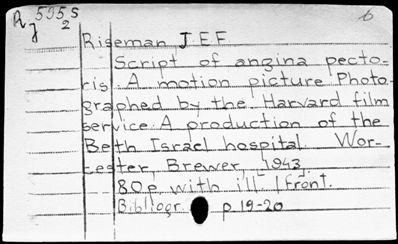 R 595s
j 2
b
Riseman J E F
Script of angina pecto-
ris. A motion picture Photo-
graphed by the Harvard film
service. A production of the
Beth Israel hospital Wor-
cester, Brewer, 1943.
80p with ill. 1 front.
Bibliogr. p. 19-20